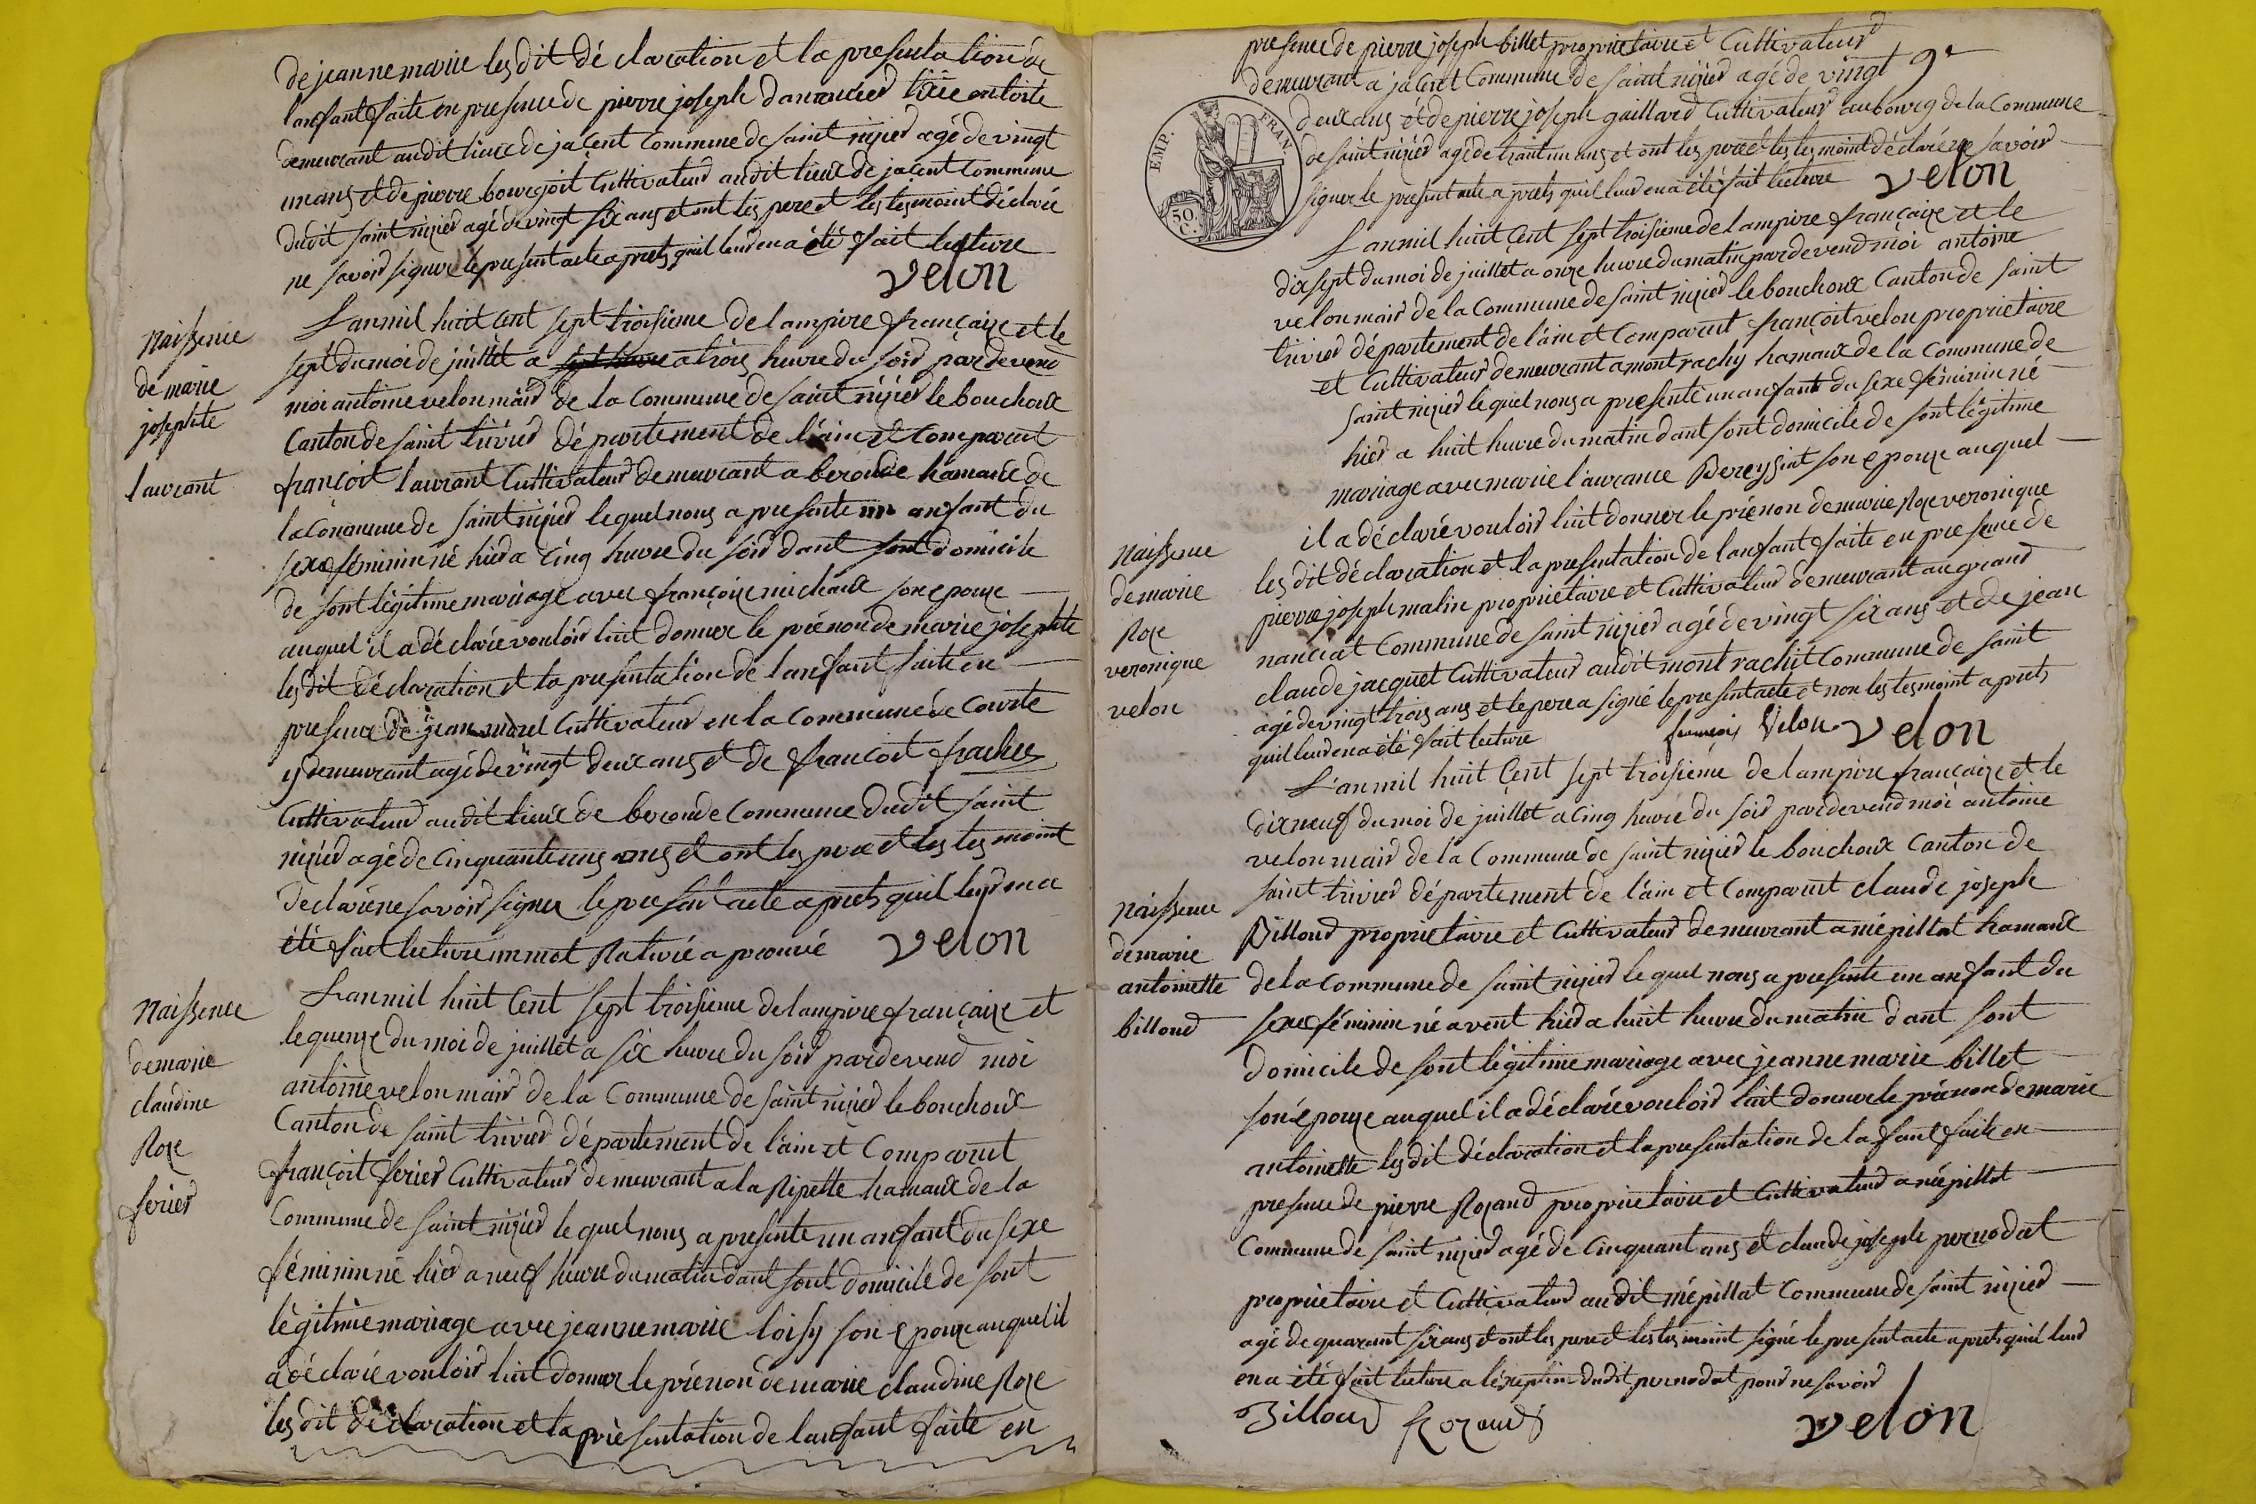 de jeanne marie les dit dé claration et la presentation de
lanfant faite en presence de pierre joseph danancier tixie en toile
demeurant audit lieux de jacent Commune de saint nizier agé de vingt
un ans et de pierre bourgoit Cultivateur audit lieux de jacent Commune
dudit saint nizier agé de vingt six ans et ont les pere et les tesmoint déclaré
ne savoir signer le present acte a prets quil leur en a été fait lecture
velon
Naissence
de marie
josephte
laurant
Lan mil huit cent sept troisieme de lampire française et le
sept du moi de juillet a sept heure a trois heure du soir pardevend
moi antoine velon mair de la Commune de saint nizier le bouchoux
Canton de saint trivier dé partement de l'ain et Comparut
françoit laurant Cultivateur demeurant a beronde hamaux de
la Commune de saint nizier le quel nous a presente un anfant du
sexe féminin né hier a cinq heure du soir dant sont domicile
de sont légitime mariage avec françoize michaux son epouze
auquel il a dé claré vouloir luit donner le prénon de marie josephte
les dit déclaration et la presentation de l anfant faite en
presence de jean morel Cultivateur en la Commune de Courte
y demeurant agé de vingt deux ans et de francoit frachet
Cultivateur audit lieux de beronde Commune dudit saint
nizier agé de Cinquante uns ans et ont les pere et les tesmoint
declaré ne savoir signer le present acte a prets quil leur en a
été fait lecture un mot raturé a prouvé velon
Naissence
de marie
claudine
Roze
ferier
Lan mil huit Cent sept troisieme de lampire française et
le quenze du moi de juillet a six heure du soir pardevend moi
antoine velon mair de la Commune de saint nizier le bouchoux
Canton de saint trivier département de l'ain et Comparut
françoit ferier Cultivateur demeurant a la Ripette hamaux de la
Commune de saint nizier le quel nous a presente un anfant du sexe
féminin né hier a neuf heure du matin dant sont domicile de sont
légitime mariage avec jeanne marie loisy son epouze auquel il
a dé claré vouloir luit donner le prénon de marie claudine Roze
les dit dé claration et la présentation de lanfant faite en
presence de pierre joseph billet proprietaire et Cultivateur
9e
demeurant a jacent Commune de saint nizier agé de vingt
deux ans et de pierre joseph gaillard Cultivateur au bourg de la Commune
EMP. FRAN.
50 C.
de saint nizier agé de trante un ans et ont les pere et les tesmoint déclaré ne savoir
signer le present acte a prets quil leur en a été fait lecture velon
Lan mil huit Cent sept troisieme de lampire française et le
dix sept du moi de juillet a onze heure du matin pardevend moi antoine
velon mair de la Commune de saint nizier le bouchoux Canton de saint
trivier département de l'ain et Comparut françoit velon proprietaire
et Cultivateur demeurant a montrachy hamaux de la Commune de
saint nizier lequel nous a presenté un anfant du sexe féminin né
hier a huit heure du matin dant sont domicile de sont légitime
mariage avec marie laurance Pereyziat son epouze auquel
Naissence
de marie
Roze
veronique
velon
il a déclaré vouloir luit donner le prénon de marie Roze veronique
les dit déclaration et la presentation de lanfant faite en presence de
pierre joseph malin proprietaire et Cultivateur demeurant au grand
nanciat Commune de saint nizier agé de vingt six ans et de jean
claude jacquet Cultivateur audit montrachit Commune de saint
agé de vingt trois ans et le pere a signé le present acte et non les tesmoint a prets
quil leur en a été fait lecture françois Velon velon
Lan mil huit Cent sept troisieme de lampire françaize et le
dix neuf du moi de juillet a Cinq heure du soir pardevend moi antoine
velon mair de la Commune de saint nizier le bouchoux Canton de
Naissence
de marie
antoinette
billoud
saint trivier département de l'ain et Comparut claude joseph
Billoud proprietaire et Cultivateur demeurant a mépillat hamaux
de la Commune de saint nizier le quel nous a presente un anfant du
sexe féminin né avent hier a huit heure du matin dant sont
domicile de sont légitime mariage avec jeanne marie billet
son épouze auquel il a déclaré vouloir luit donner le prénon de marie
antoinette les dit déclaration et la presentation de lanfant faite en
presence de pierre Rozand proprietaire et Cultivateur a mépillat
Commune de saint nizier agé de Cinquant ans et claude joseph pernodat
proprietaire et Cultivateur audit mépillat Commune de saint nizier
agé de quarant six ans et ont les pere et les tesmoint signé le present acte a prets quil leur
en a été fait lecture a lexseption dudit pernodat pour ne savoir
Billoud Rozand velon